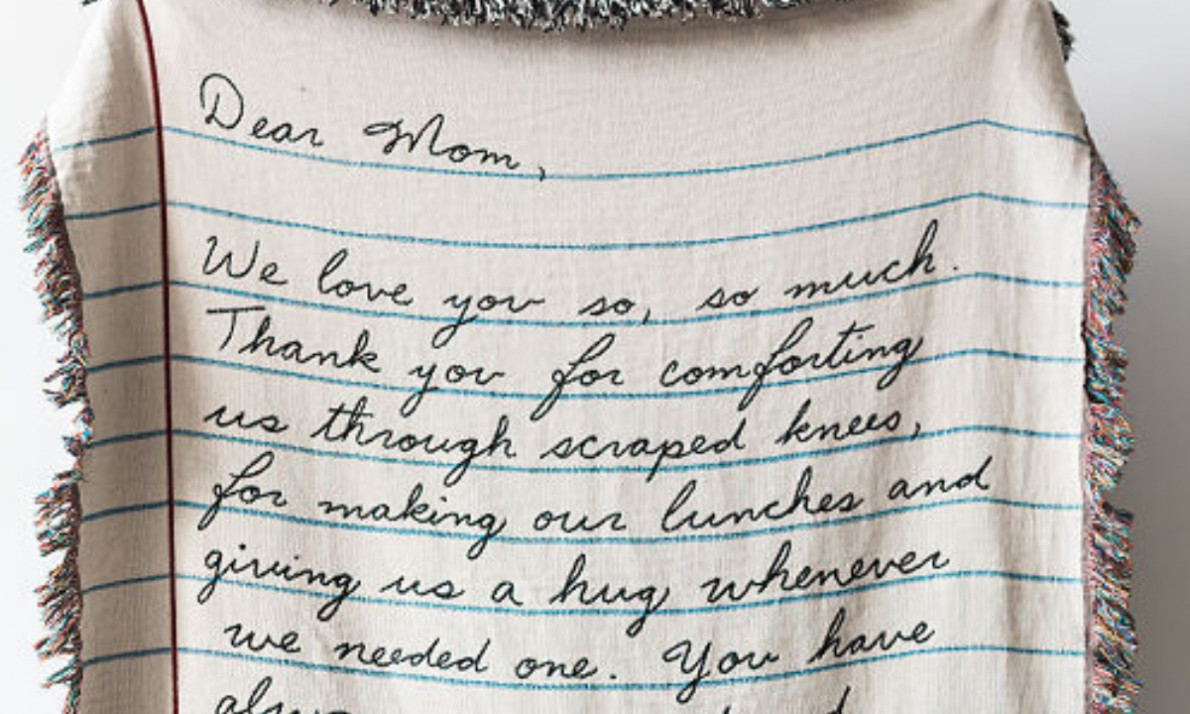 Dear Mom,
We love you so, so much.
Thank you for comforting
us through scraped knees,
for making our lunches and
giving us a hug whenever
we needed one. You have